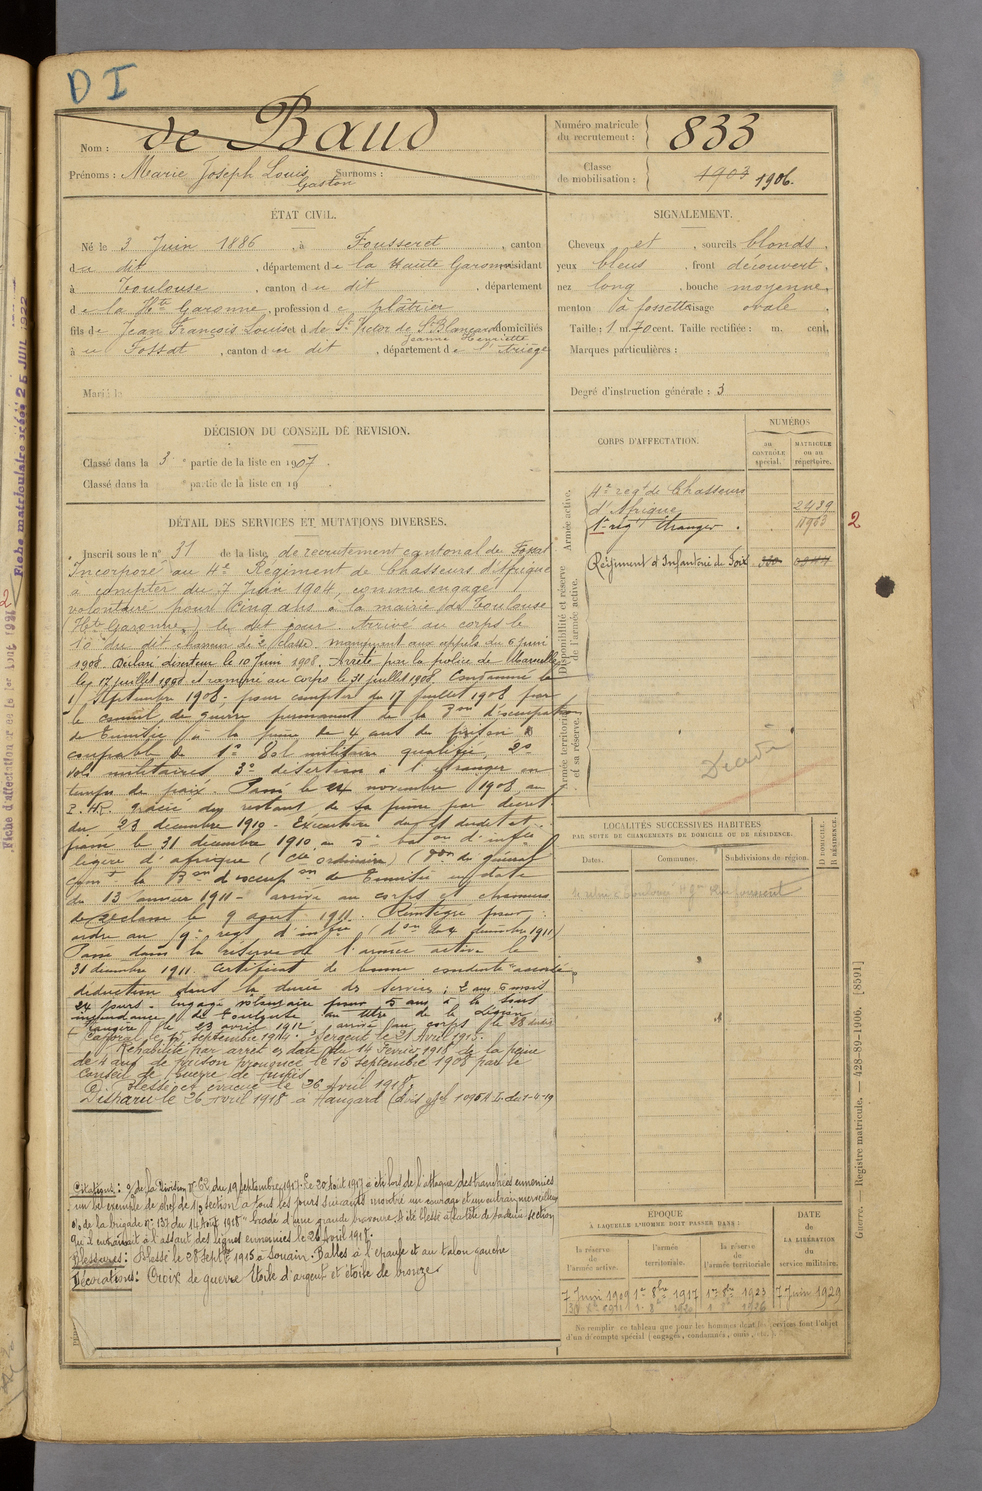 D I
Nom : de Baud
Prénoms : Marie Joseph Louis Surnoms :
Gaston
Numéro matricule
du recrutement : 833
Classe
de mobilisation : 1903 1906.
ÉTAT CIVIL.
Né le 3 Juin 1886, à Fousseret, canton
du dit, département de la Haute Garonne, résidant
à Toulouse, canton du dit, département
de la Hte Garonne, profession de plâtrier
fils de Jean François Louis et de St Victor de St Blancard domiciliés
Jeanne Henriette
à Fossat, canton du dit, département de l'Ariège
Marié à
SIGNALEMENT.
Cheveux et, sourcils blonds,
yeux bleus, front découvert,
nez long, bouche moyenne,
menton à fossette visage ovale.
Taille : 1 m. 70 cent. Taille rectifiée : m. cent.
Marques particulières :
Degré d'instruction générale : 3
DÉCISION DU CONSEIL DE REVISION.
Classé dans la 3e partie de la liste en 1907.
Classé dans la e partie de la liste en 19 .
DÉTAIL DES SERVICES ET MUTATIONS DIVERSES.
Inscrit sous le n° 31 de la liste de recrutement cantonal de Fossat
Incorporé au 4e Régiment de Chasseurs d'Afrique
à compter du 7 Juin 1904, comme engagé
volontaire pour cinq ans à la mairie de Toulouse
(Hte Garonne) le dit jour. Arrivé au corps le
10 du dit chasseur de 2e classe. manquant aux appels du 6 juin
1908. Déclaré déserteur le 10 Juin 1908. Arrêté par la police de Marseille
le 17 juillet 1908 et ramené au corps le 31 juillet 1908. Condamné le
1 Septembre 1908 pour compter du 17 juillet 1908 par
le conseil de guerre permanent de la don d'occupation
de Tunisie à la peine de 4 ans de prison
coupable de 1° Vol militaire qualifié, 2°
vols militaires 3° désertion à l'étranger en
temps de paix. Passé le 24 novembre 1908 au
gracié du restant de sa peine par décret
du 23 décembre 1910. Exécutoire du 31 du dit et
passé le 31 décembre 1910 au 5e baton d'infie
légère d'afrique (Cie ordinaire) (Don du général
Comt la Don d'occupon de Tunisie en date
du 13 janvier 1911 - arrivé au corps et chasseur
de 2e classe le 9 aout 1911. Réintégré pour
ordre au 9e regt d'infie
Passé dans la réserve de l'armée active le
31 décembre 1911. Certificat de bonne conduite accordé
déduction dans la durée des services : 2 ans 6 mois
24 jours. Engagé volontaire pour 5 ans à la sous
intendance de Toulouse au titre de la Légion
étrangère le 23 avril 1912, arrivé au corps le 28 dudit
Caporal le 15 septembre 1914. Sergent le 21 Avril 1915.
Réhabilité par arrêt en date du 14 Février 1918 de la peine
de 4 ans de prison prononcé le 15 septembre 1908 par le
Conseil de Guerre de Tunis
Blessé et évacué le 26 Avril 1918.
Disparu le 26 Avril 1918 à Hangard
Citations : O/ de la Division n° 62 du 19 Septembre 1917. Le 20 Août 1917 a été lors de l'attaque des tranchées ennemies
un bel exemple de chef de 1/2 section a tous les jours suivants montré un courage et un entrain merveilleux
O/ de la brigade n° 137 du 14 Août 1918 "Gradé d'une grande bravoure. A été blessé à la tête de sa demi-section
qu'il entraînait à l'assaut des lignes ennemies le 26 Avril 1918.
Blessures : Blessé le 28 Septbre 1915 à Souain. Balles à l'épaule et au talon gauche
Décorations : Croix de guerre étoile d'argent et étoile de bronze
CORPS D'AFFECTATION.
NUMÉROS
au CONTRÔLE spécial.
MATRICULE ou au répertoire.
Armée active.
4e regt de Chasseurs
d'Afrique 2439
1er regt Etranger 11903 2
Disponibilité et réserve de l'armée active.
Régiment d'Infanterie de Foix
Armée territoriale et sa réserve.
Décédé
LOCALITÉS SUCCESSIVES HABITÉES
PAR SUITE DE CHANGEMENTS DE DOMICILE OU DE RÉSIDENCE.
Dates. Communes. Subdivisions de région. D DOMICILE. R RÉSIDENCE.
ÉPOQUE
À LAQUELLE L'HOMME DOIT PASSER DANS :
la réserve de l'armée active.
l'armée territoriale.
la réserve de l'armée territoriale
DATE de LA LIBÉRATION du service militaire.
7 Juin 1909 1er 8bre 1917 1er 8bre 1923 7 Juin 1929
Ne remplir ce tableau que pour les hommes dont les services font l'objet
d'un décompte spécial (engagés, condamnés, omis, etc.).
Guerre. — Registre matricule. — 428-89-1906. [8591]